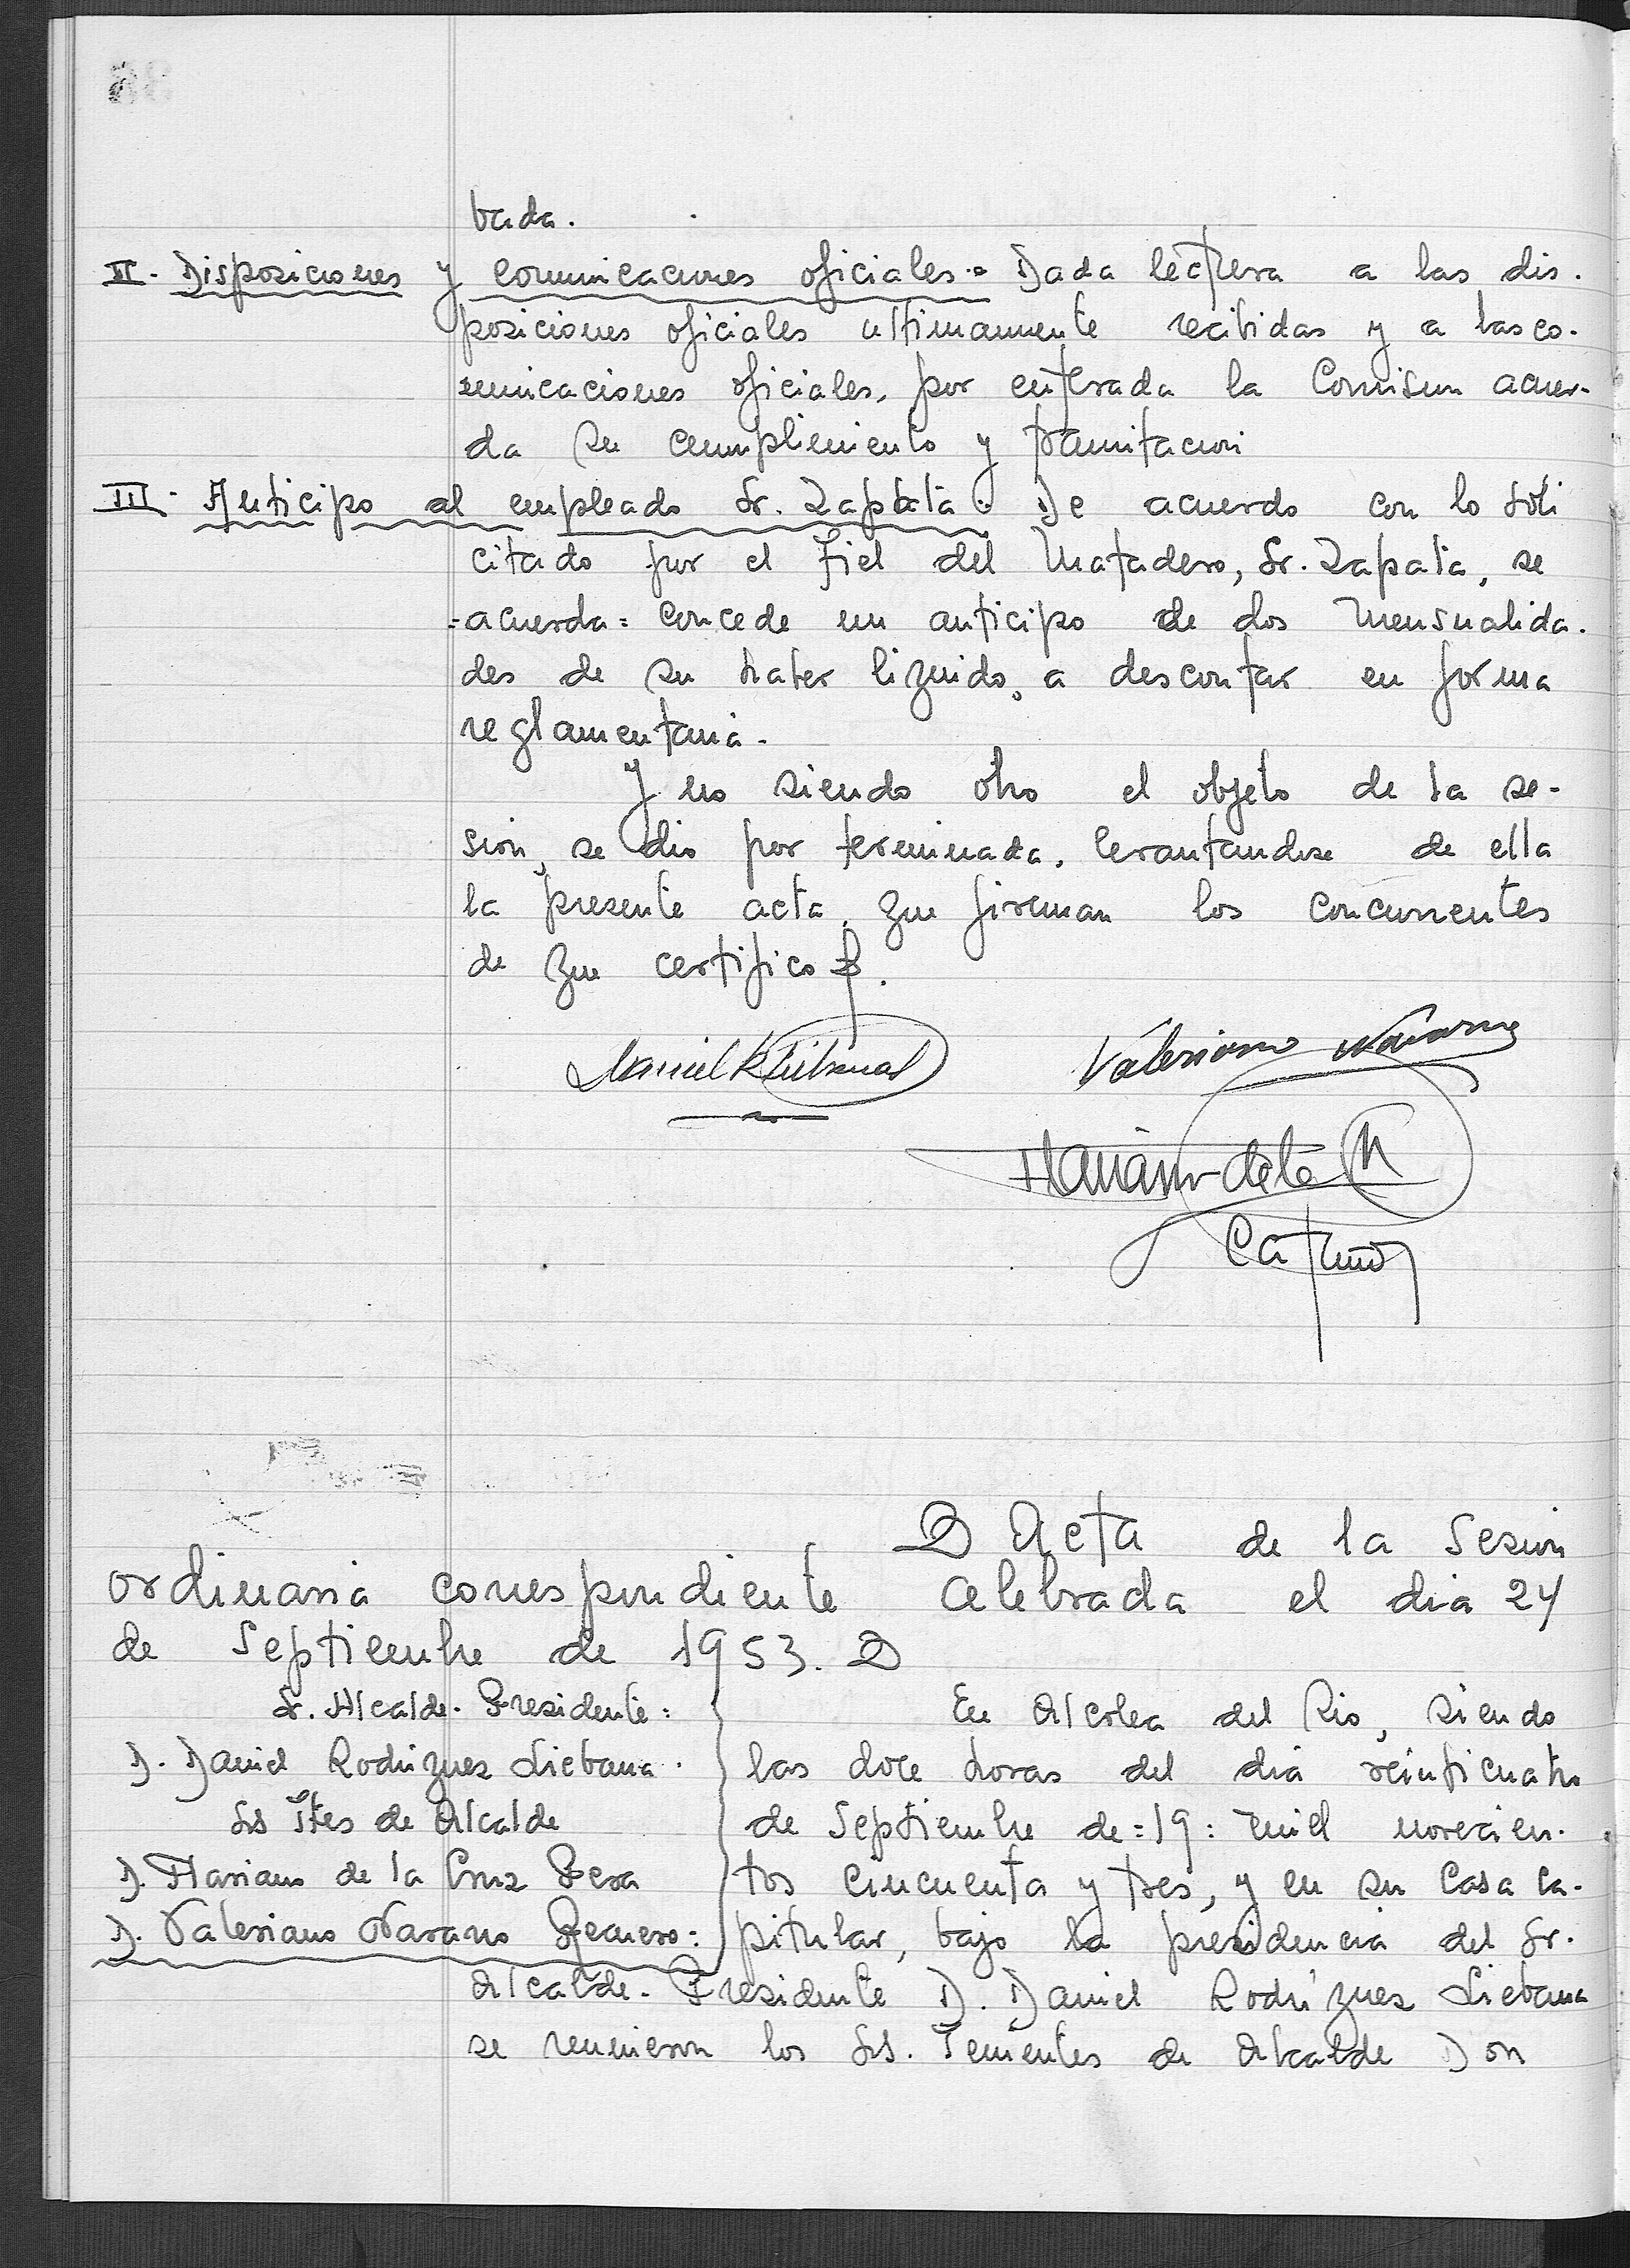 bada.
II - Disposiciones y comunicaciones oficiales = Dada lectura a las dis-
posiciones oficiales ultimamente recibidas y a las co-
municaciones oficiales, por enterada la Comision acuer-
da su cumplimiento y tramitacion
III - Anticipo al empleado Sr. Zapata: De acuerdo con lo soli
citado por el Fiel del Matadero, Sr. Zapata, se
=acuerda= concede un anticipo de dos mensualida-
des de su haber liquido, a descontar en forma
reglamentaria.
Y no siendo otro el objeto de la se-
sion, se dio por terminada, levantandose de ella
la presente acta, que firman los concurrentes
de que certifico.
Daniel R Liebanas
Valeriano Navarro
Mariano de la
Sr. Alcalde-Presidente:
D. Daniel Rodriguez Liebana.
Srs Ttes de Alcalde
D. Mariano de la Cruz
D. Valeriano Navarro Requero:
Acta de la Sesion
ordinaria correspondiente celebrada el dia 24
de Septiembre de 1953.
En Alcolea del Rio, siendo
las doce horas del dia veinticuatro
de Septiembre de =19= mil novecien-
tos cincuenta y tres, y en su Casa Ca-
pitular, bajo la presidencia del Sr.
Alcalde-Presidente D. Daniel Rodriguez Liebana
se reunieron los Srs. Tenientes de Alcalde Don